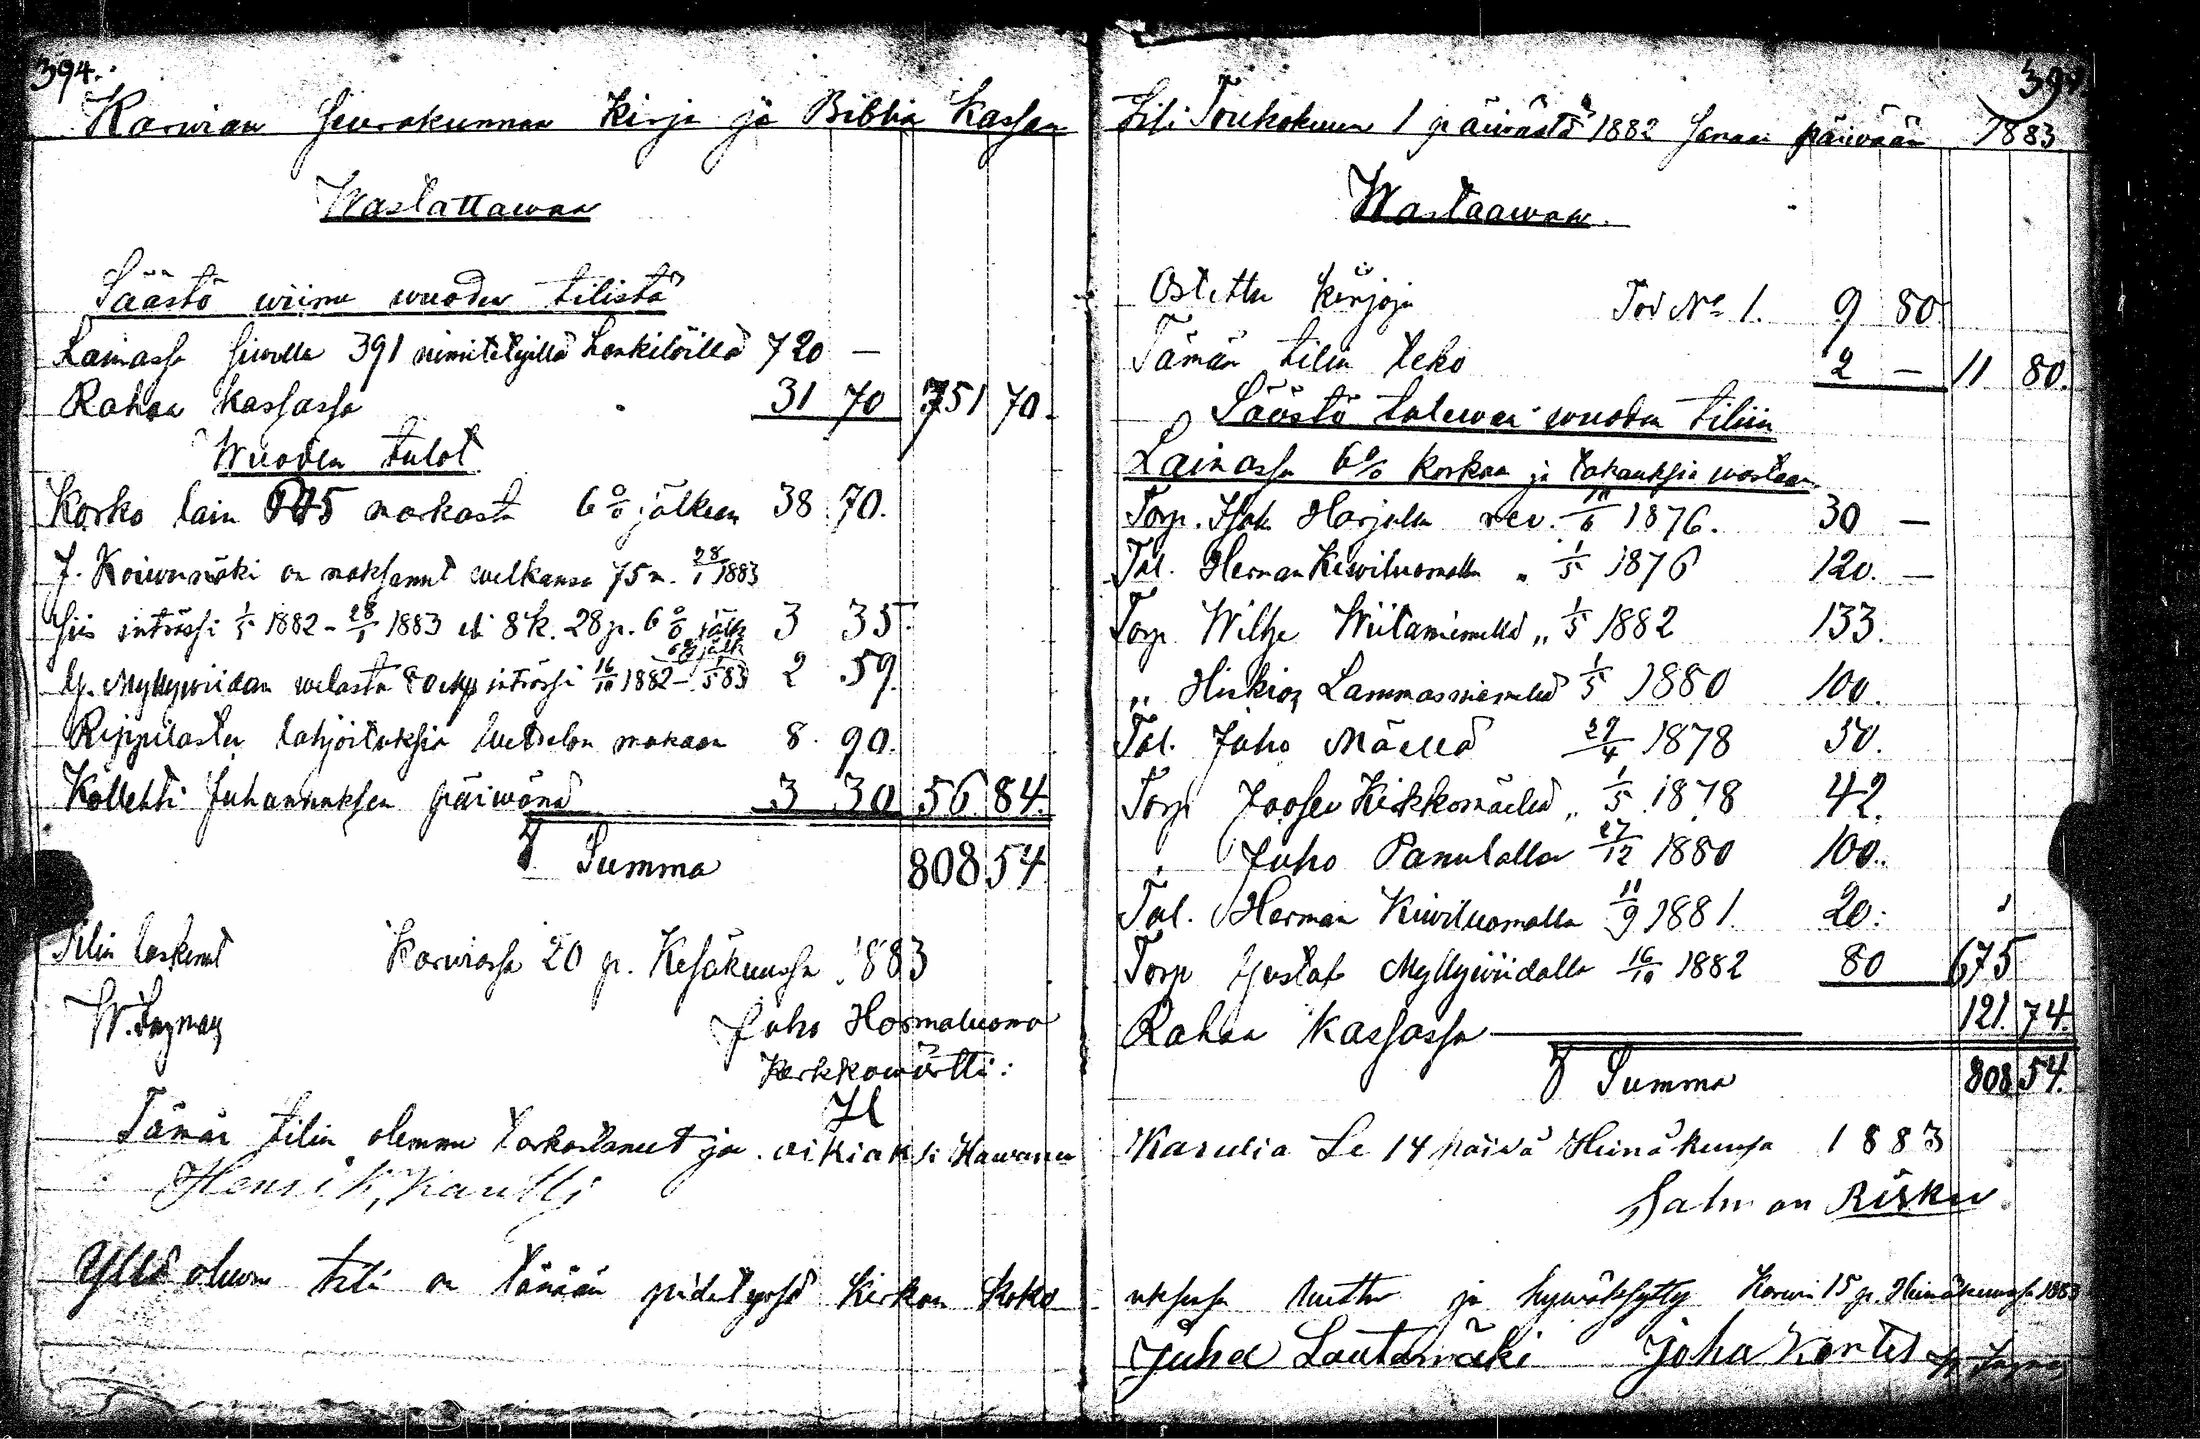 394.
Karwian Seurakunnan Kirja ja Biblia Kassan
Wastattawaa
Säästö wiime wuoden tilistä
Lainassa siwulla 391 nimitetyillä henkilöillä 720 —
Rahaa Kassassa 31 70 751 70.
Wuoden tulot
Korko lain 645 markasta 6 % jälkeen 38 70.
J. Koiwumäki on maksanut welkansa 75 m. 28/1 1883
siis intrössi 1/5 1882 - 28/1 1883 eli 8 k. 28 p. 6 % jälk 3 35
G. Myllywiidan welasta 80 intrössi 16/10 1882 - 1/5 83 6 % jälk 2 59.
Rippilasten lahjoituksia luettelon mukaan 8 90.
Kollehti Juhannuksen päiwänä 3 30 56 84.
Summa 808 54
Tilin laskenut Karwiassa 20 p. Kesäkuussa 1883
Juho Hormaluoma
Kirkkowärtti:
Tämän tilin olemme tarkastaneet ja oikiaksi Hawanneet
Henrik Kautti
Yllä olewa tili on tänään pidetyssä Kirkon Koko
Tili Toukokuun 1 päiwästä 1882 samaan päiwään 1883.
Wastaawaa.
Ostettu kirjoja Tod No 1. 9 80
Tämän tilin teko 2 — 11 80.
Säästö tulewan wuoden tiliin
Lainassa 6 % korkoa ja takauksia wastaan
Torp. Isak Harjulla rev. 1876. 30 —
Tal. Herman Kiwiluomalla " 1/5 1876 120. —
Torp Wilhe Wiitaniemellä " 1/5 1882 133.
" Hiskias Lammasniemellä 1/5 1880 100.
Tal. Juho Mäellä 29/4 1878 50.
Torp Joosep Kirkkomäellä " 1/5 1878 42.
" Juho Panulalla 27/12 1880 100.
Tal. Herman Kiwiluomalla 11/9 1881. 20:
Torp Gustaf Myllywiidalla 16/10 1882 80 675
Rahaa Kassassa 121. 74.
Summa 808 54.
Karvia Se 14 päivä Heinäkuusa 1883
Salomon Risku
uksessa luettu ja hywäksytty Karwia 15 p. Heinäkuussa 1883
Juha Lautamäki Joha Kontti